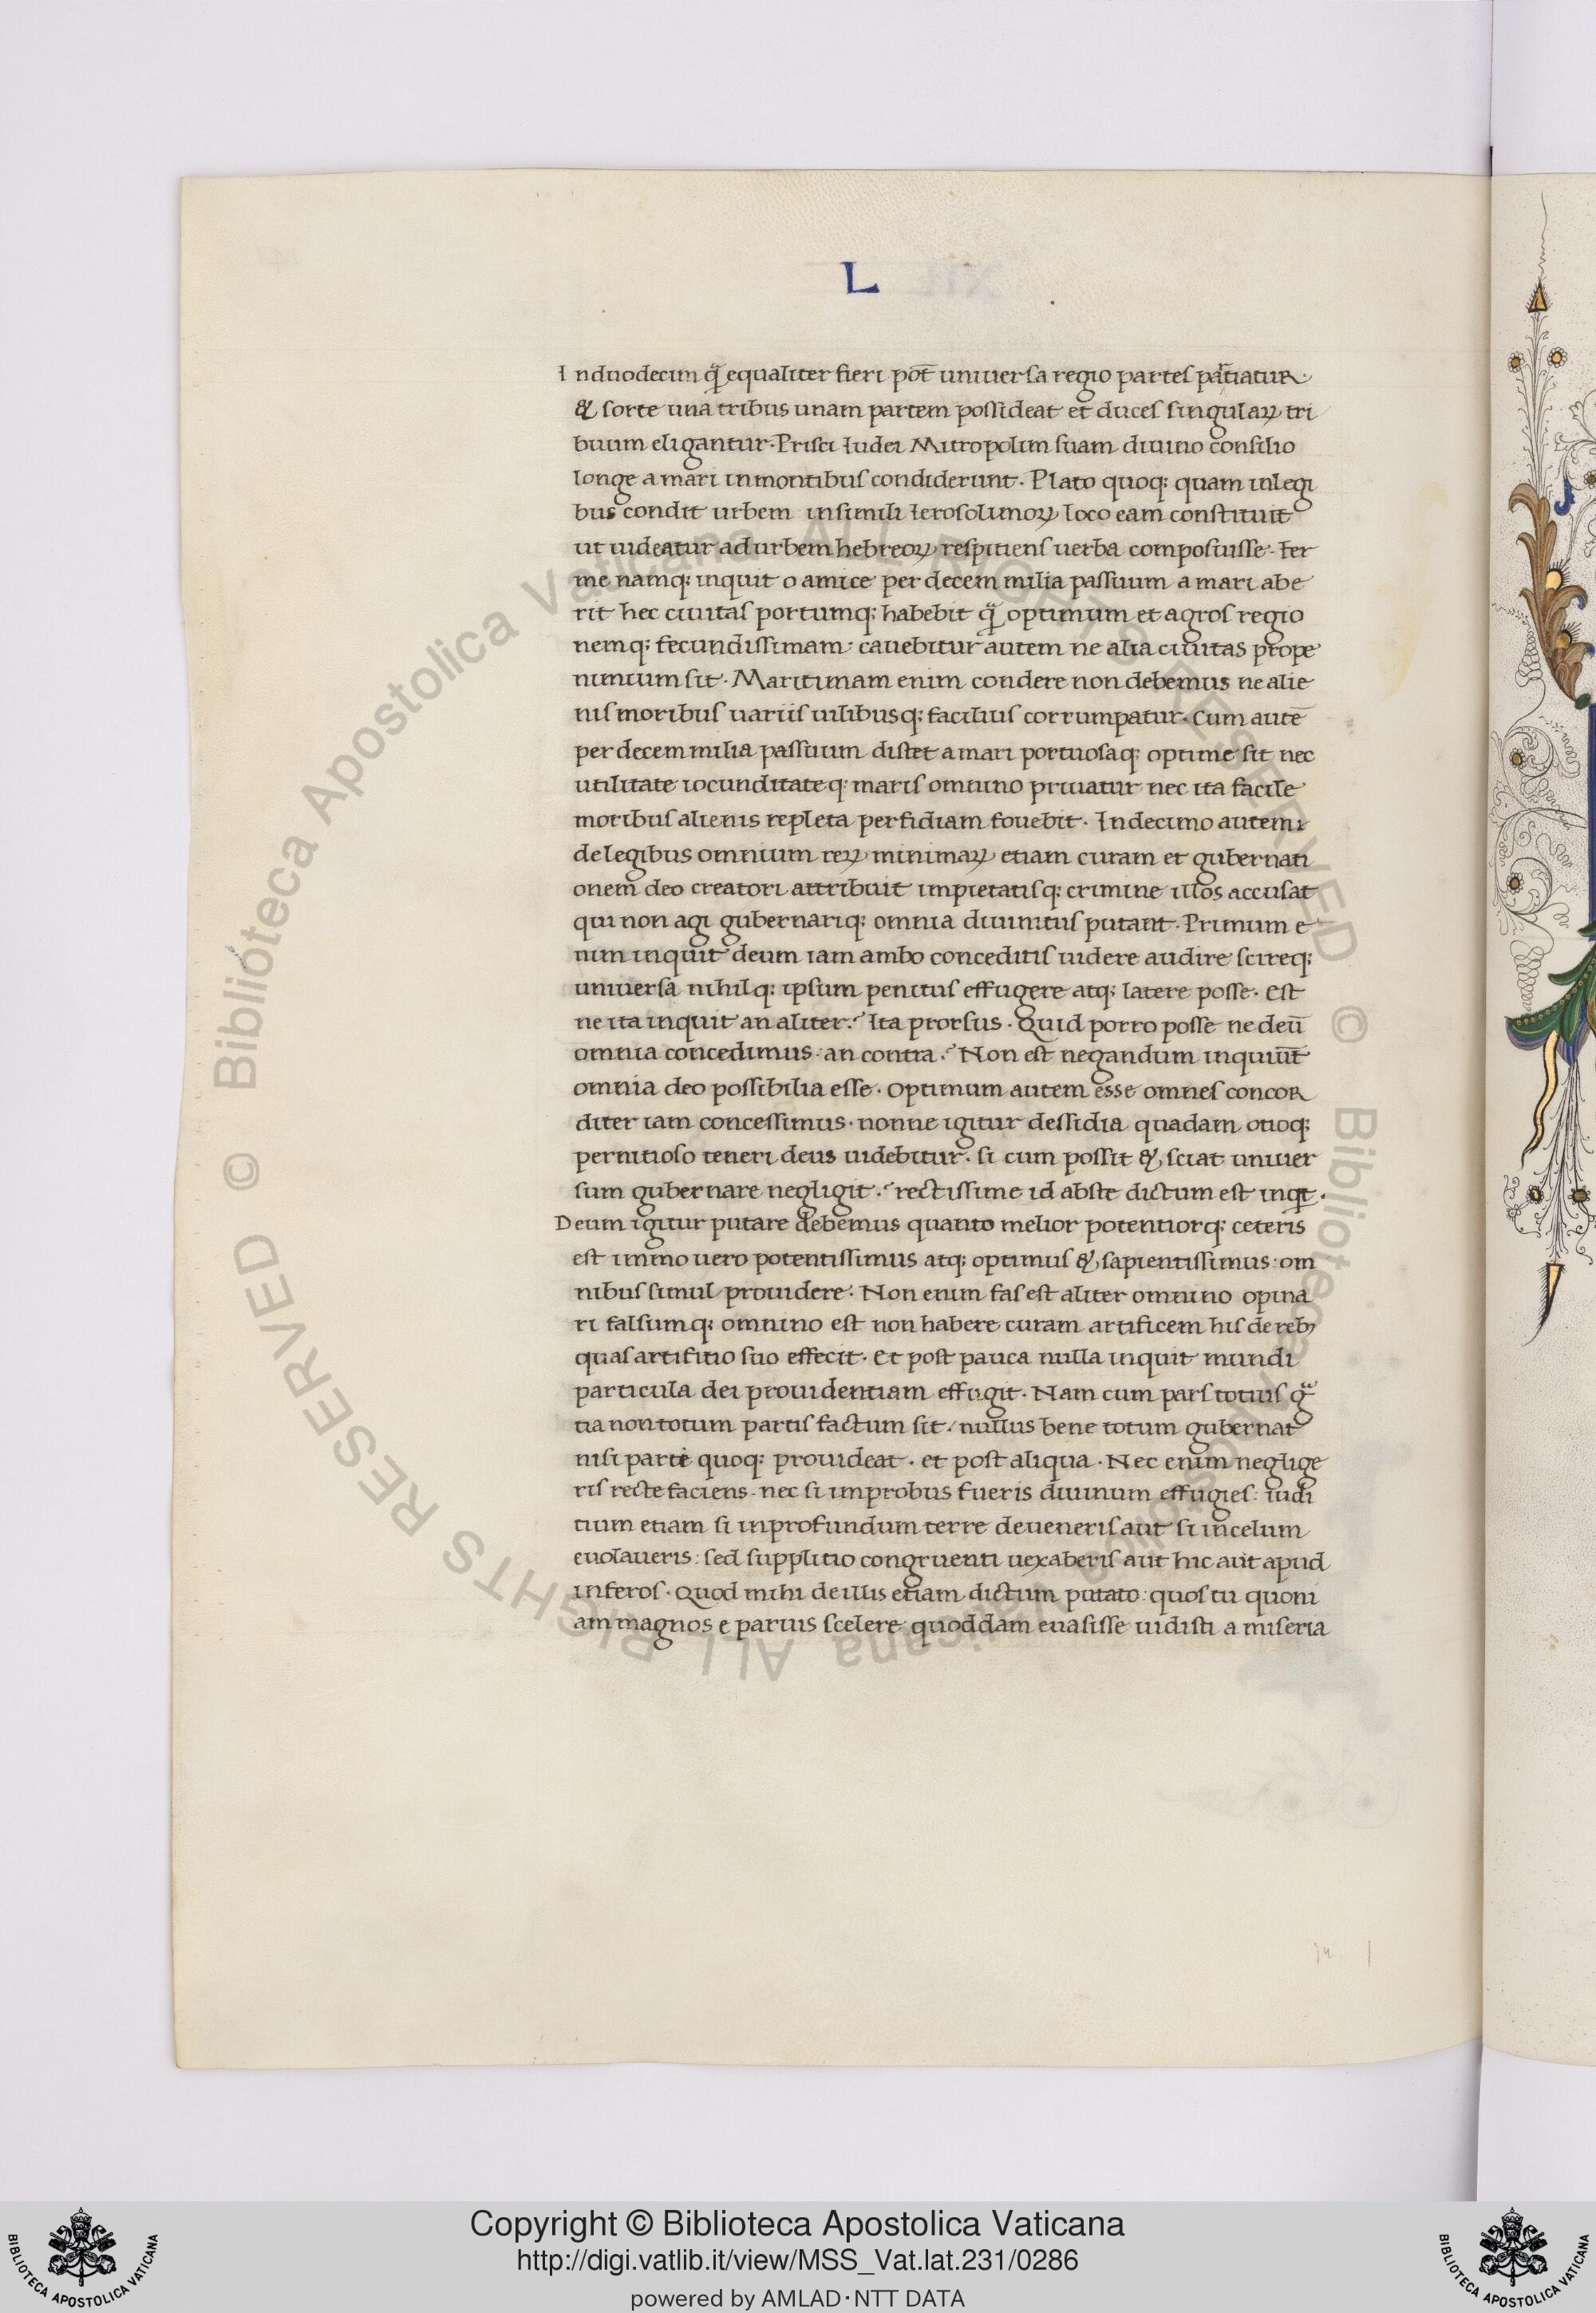 L
In duodecim q̃ equaliter fieri pot̄ uniuersa regio partes patiatur·
& sorte una tribus unam partem possideat et duces singulaꝝ tri
buum eligantur· Prisci Iudei Mitropolim suam diuino consilio
longe a mari in montibus condiderunt· Plato quoq; quam in legi
bus condit urbem in simili Ierosolimoꝝ loco eam constituit
ut uideatur ad urbem hebreoꝝ respitiens uerba composuisse· Fer
me namq; inquit o amice per decem milia passuum a mari abe
rit hec ciuitas portumq; habebit q̃ optimum et agros regio
nemq; fecundissimam: cauebitur autem ne alia ciuitas prope
nimium sit· Maritimam enim condere non debemus ne alie
nis moribus uariis uilibusq; facilius corrumpatur· Cum autē
per decem milia passuum distet a mari portuosaq; optime sit nec
utilitate iocunditateq; maris omnino priuatur nec ita facile
moribus alienis repleta perfidiam fouebit· In decimo autem
de legibus omnium reꝝ minimaꝝ etiam curam et gubernati
onem deo creatori attribuit impietatisq; crimine illos accusat
qui non agi gubernariq; omnia diuinitus putant· Primum e
nim inquit deum iam ambo conceditis uidere audire scireq;
uniuersa nihilq; ipsum penitus effugere atq; latere posse· Est
ne ita inquit an aliter? Ita prorsus· Quid porro posse ne deū
omnia concedimus· an contra? Non est negandum inquiūt
omnia deo possibilia esse· Optimum autem esse omnes concor
diter iam concessimus· nonne igitur dessidia quadam otioq;
pernitioso teneri deus uidebitur· si cum possit & sciat uniuer
sum gubernare negligit? rectissime id abste dictum est inqt·
Deum igitur putare debemus quanto melior potentiorq; ceteris
est immo uero potentissimus atq; optimus & sapientissimus: om
nibus simul prouidere: Non enim fas est aliter omnino opina
ri falsumq; omnino est non habere curam artificem his de rebꝫ
quas artifitio suo effecit· Et post pauca nulla inquit mundi
particula dei prouidentiam effugit· Nam cum pars totius gᵃ
tia non totum partis factum sit / nullus bene totum gubernat
nisi parte quoq; prouideat· et post aliqua· Nec enim neglige
ris recte faciens· nec si improbus fueris diuinum effugies: iudi
tium etiam si in profundum terre deueneris aut si in celum
euolaueris: sed supplitio congruenti uexaberis aut hic aut apud
inferos· Quod mihi de illis etiam dictum putato: quos tu quoni
am magnos e paruis scelere quoddam euasisse uidisti a miseria
© Biblioteca Apostolica Vaticana ALL RIGHTS RESERVED © Biblioteca Apostolica Vaticana ALL RIGHTS RESERVED
BIBLIOTECA APOSTOLICA VATICANA
Copyright © Biblioteca Apostolica Vaticana
http://digi.vatlib.it/view/MSS_Vat.lat.231/0286
powered by AMLAD·NTT DATA
BIBLIOTECA APOSTOLICA VATICANA